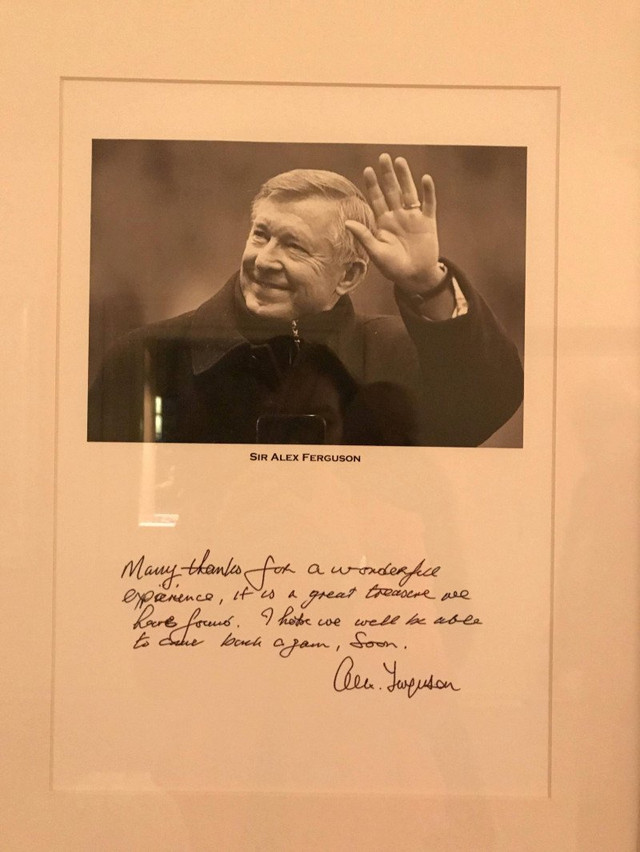 SIR ALEX FERGUSON
Many thanks for a wonderful
experience, it is a great treasure we
have found. I hope we will be able
to come back again, soon.
Alex. Ferguson